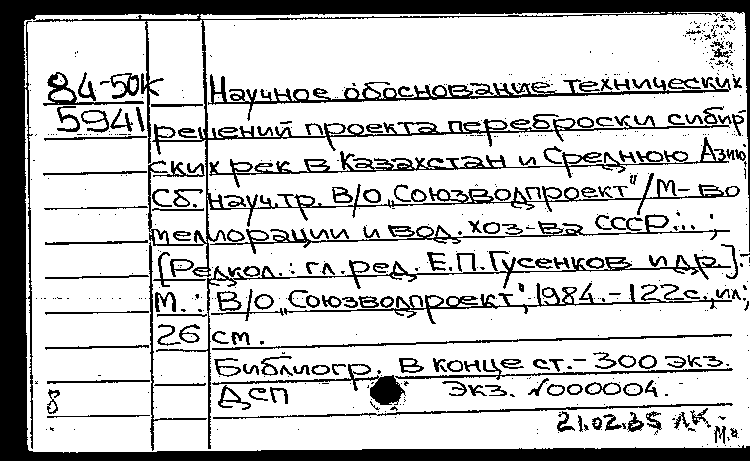 84-50к Научное обоснование технических
5941 решений проекта переброски сибир
ских рек в Казахстан и Среднюю Азию
Сб. науч. тр. В/О „Союзводпроект"/М-во
мелиорации и вод. хоз-ва СССР...;
[Редкол.: гл. ред. Е.П. Гусенков и др.].-
М.: В/О „Союзводпроект", 1984.-122 с., ил;
26 см.
Библиогр. в конце ст.-300 экз.
8 ДСП экз. №000004.
21.02.85